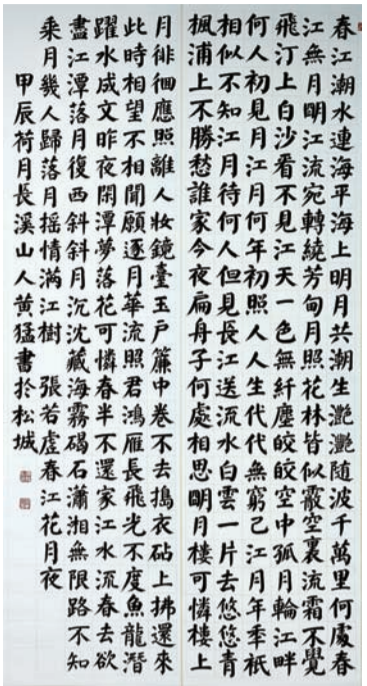 春江潮水連海平海上明月共潮生灧灧随波千萬里何處春
江無月明江流宛轉繞芳甸月照花林皆似霰空裏流霜不覺
飛汀上白沙看不見江天一色無纖塵皎皎空中孤月輪江畔
何人初見月江月何年初照人人生代代無窮已江月年秊祇
相似不知江月待何人但見長江送流水白雲一片去悠悠青
楓浦上不勝愁誰家今夜扁舟子何處相思明月樓可憐樓上
月徘徊應照離人妝鏡臺玉戶簾中卷不去搗衣砧上拂還來
此時相望不相聞願逐月華流照君鴻雁長飛光不度魚龍潛
躍水成文昨夜閑潭夢落花可憐春半不還家江水流春去欲
盡江潭落月復西斜斜月沉沉藏海霧碣石瀟湘無限路不知
乘月幾人歸落月摇情滿江樹 張若虛春江花月夜
甲辰荷月長溪山人黃猛書於松城